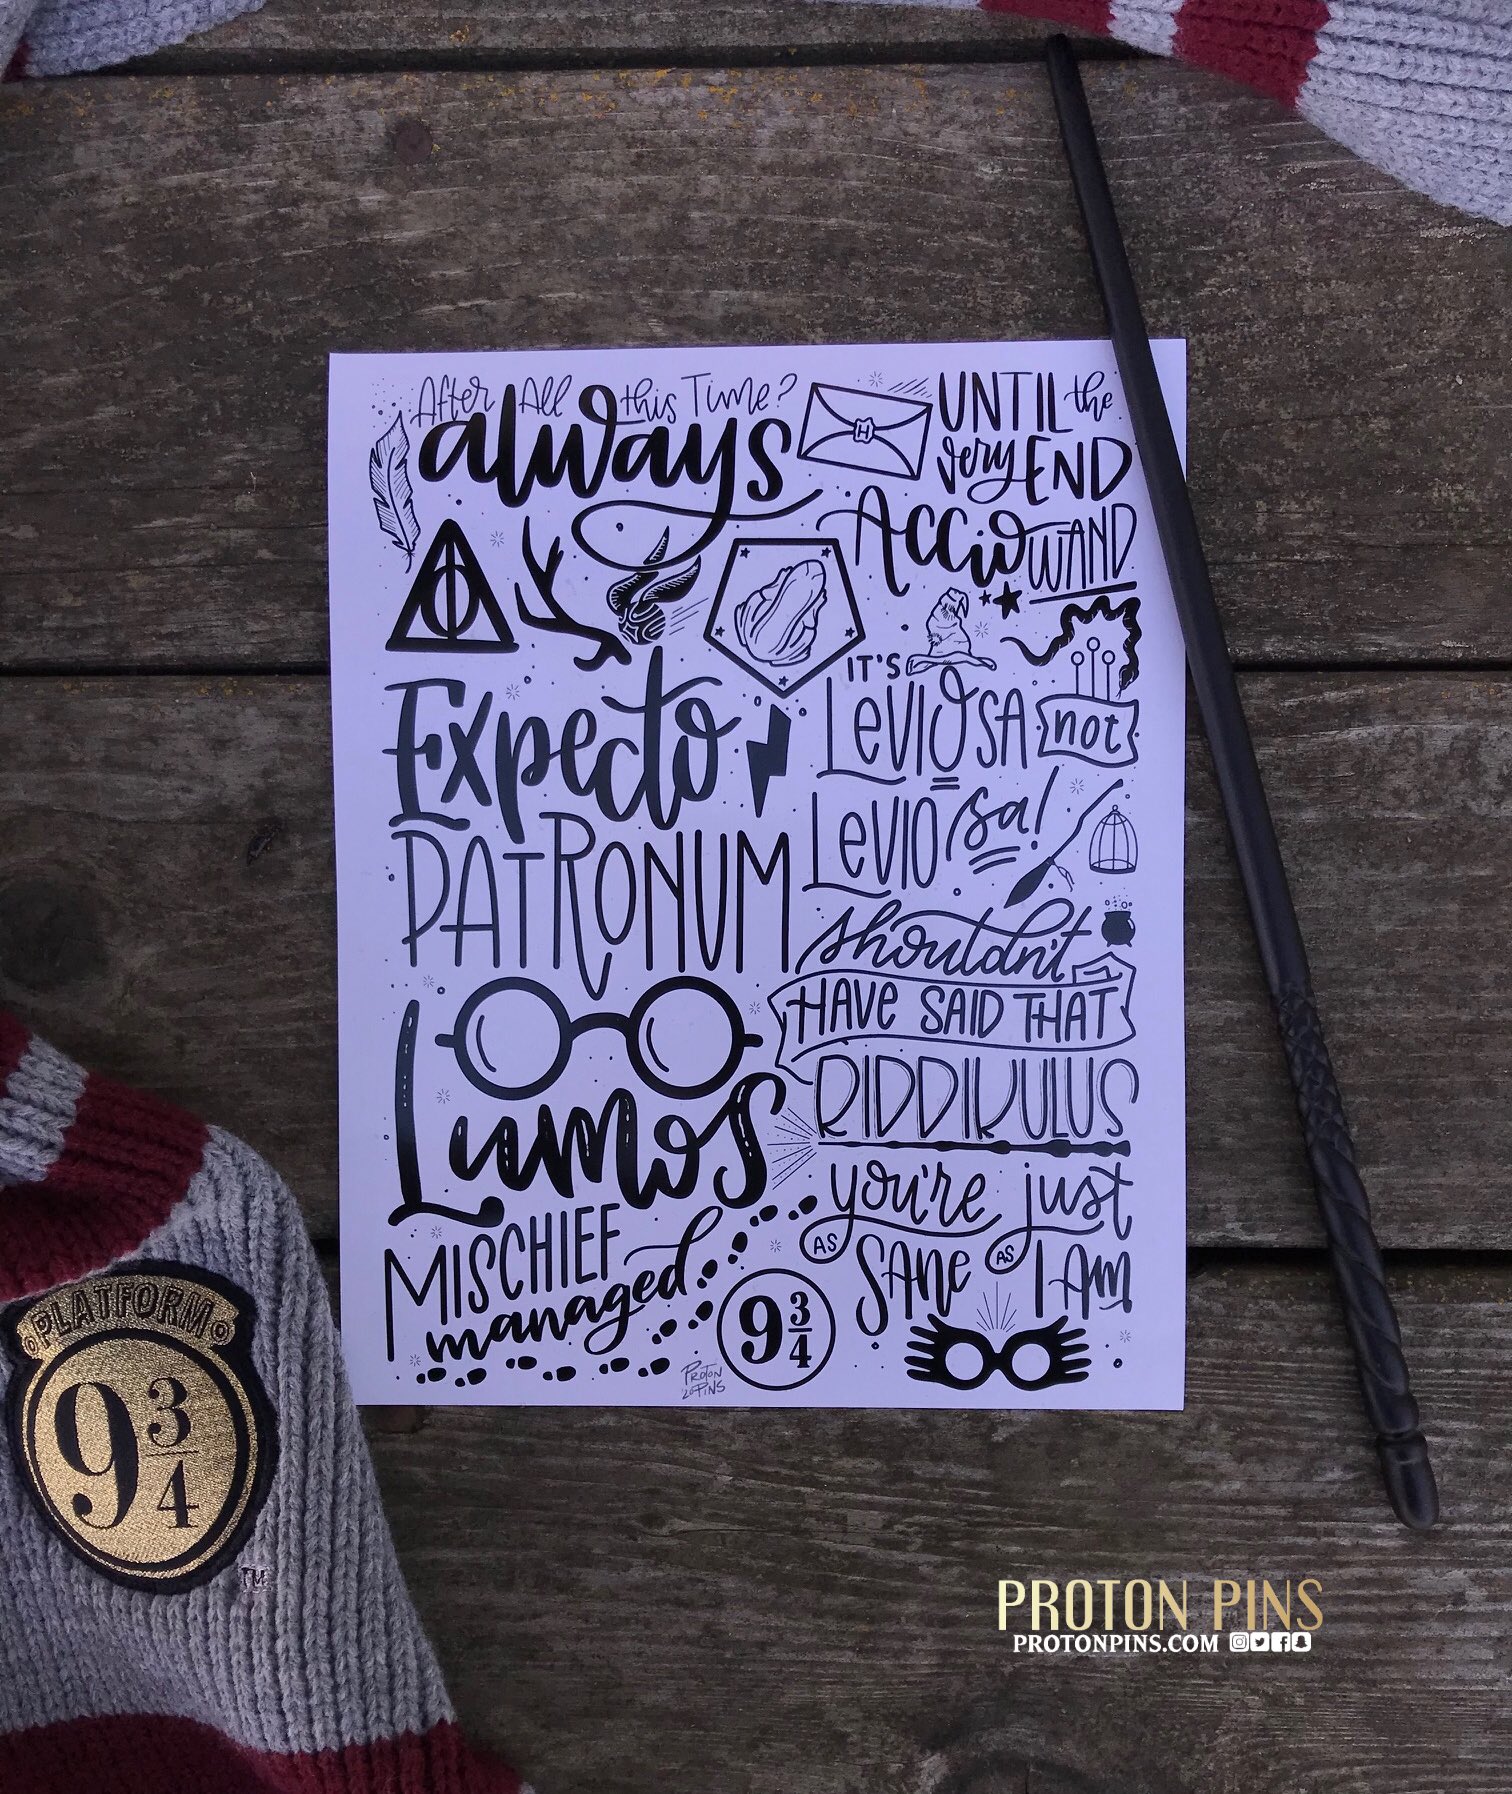 After All this Time?
always
UNTIL the
very END
Accio WAND
IT'S
LeviOSA not
Levio sa!
Expecto
PATRONUM
shouldn't
HAVE SAID THAT
RIDDIKULUS
Lumos
you're just
AS SANE AS I AM
MISCHIEF
managed
9 3/4
PROTON
'20 PINS
H
PLATFORM
9 3/4
TM
PROTON PINS
PROTONPINS.COM